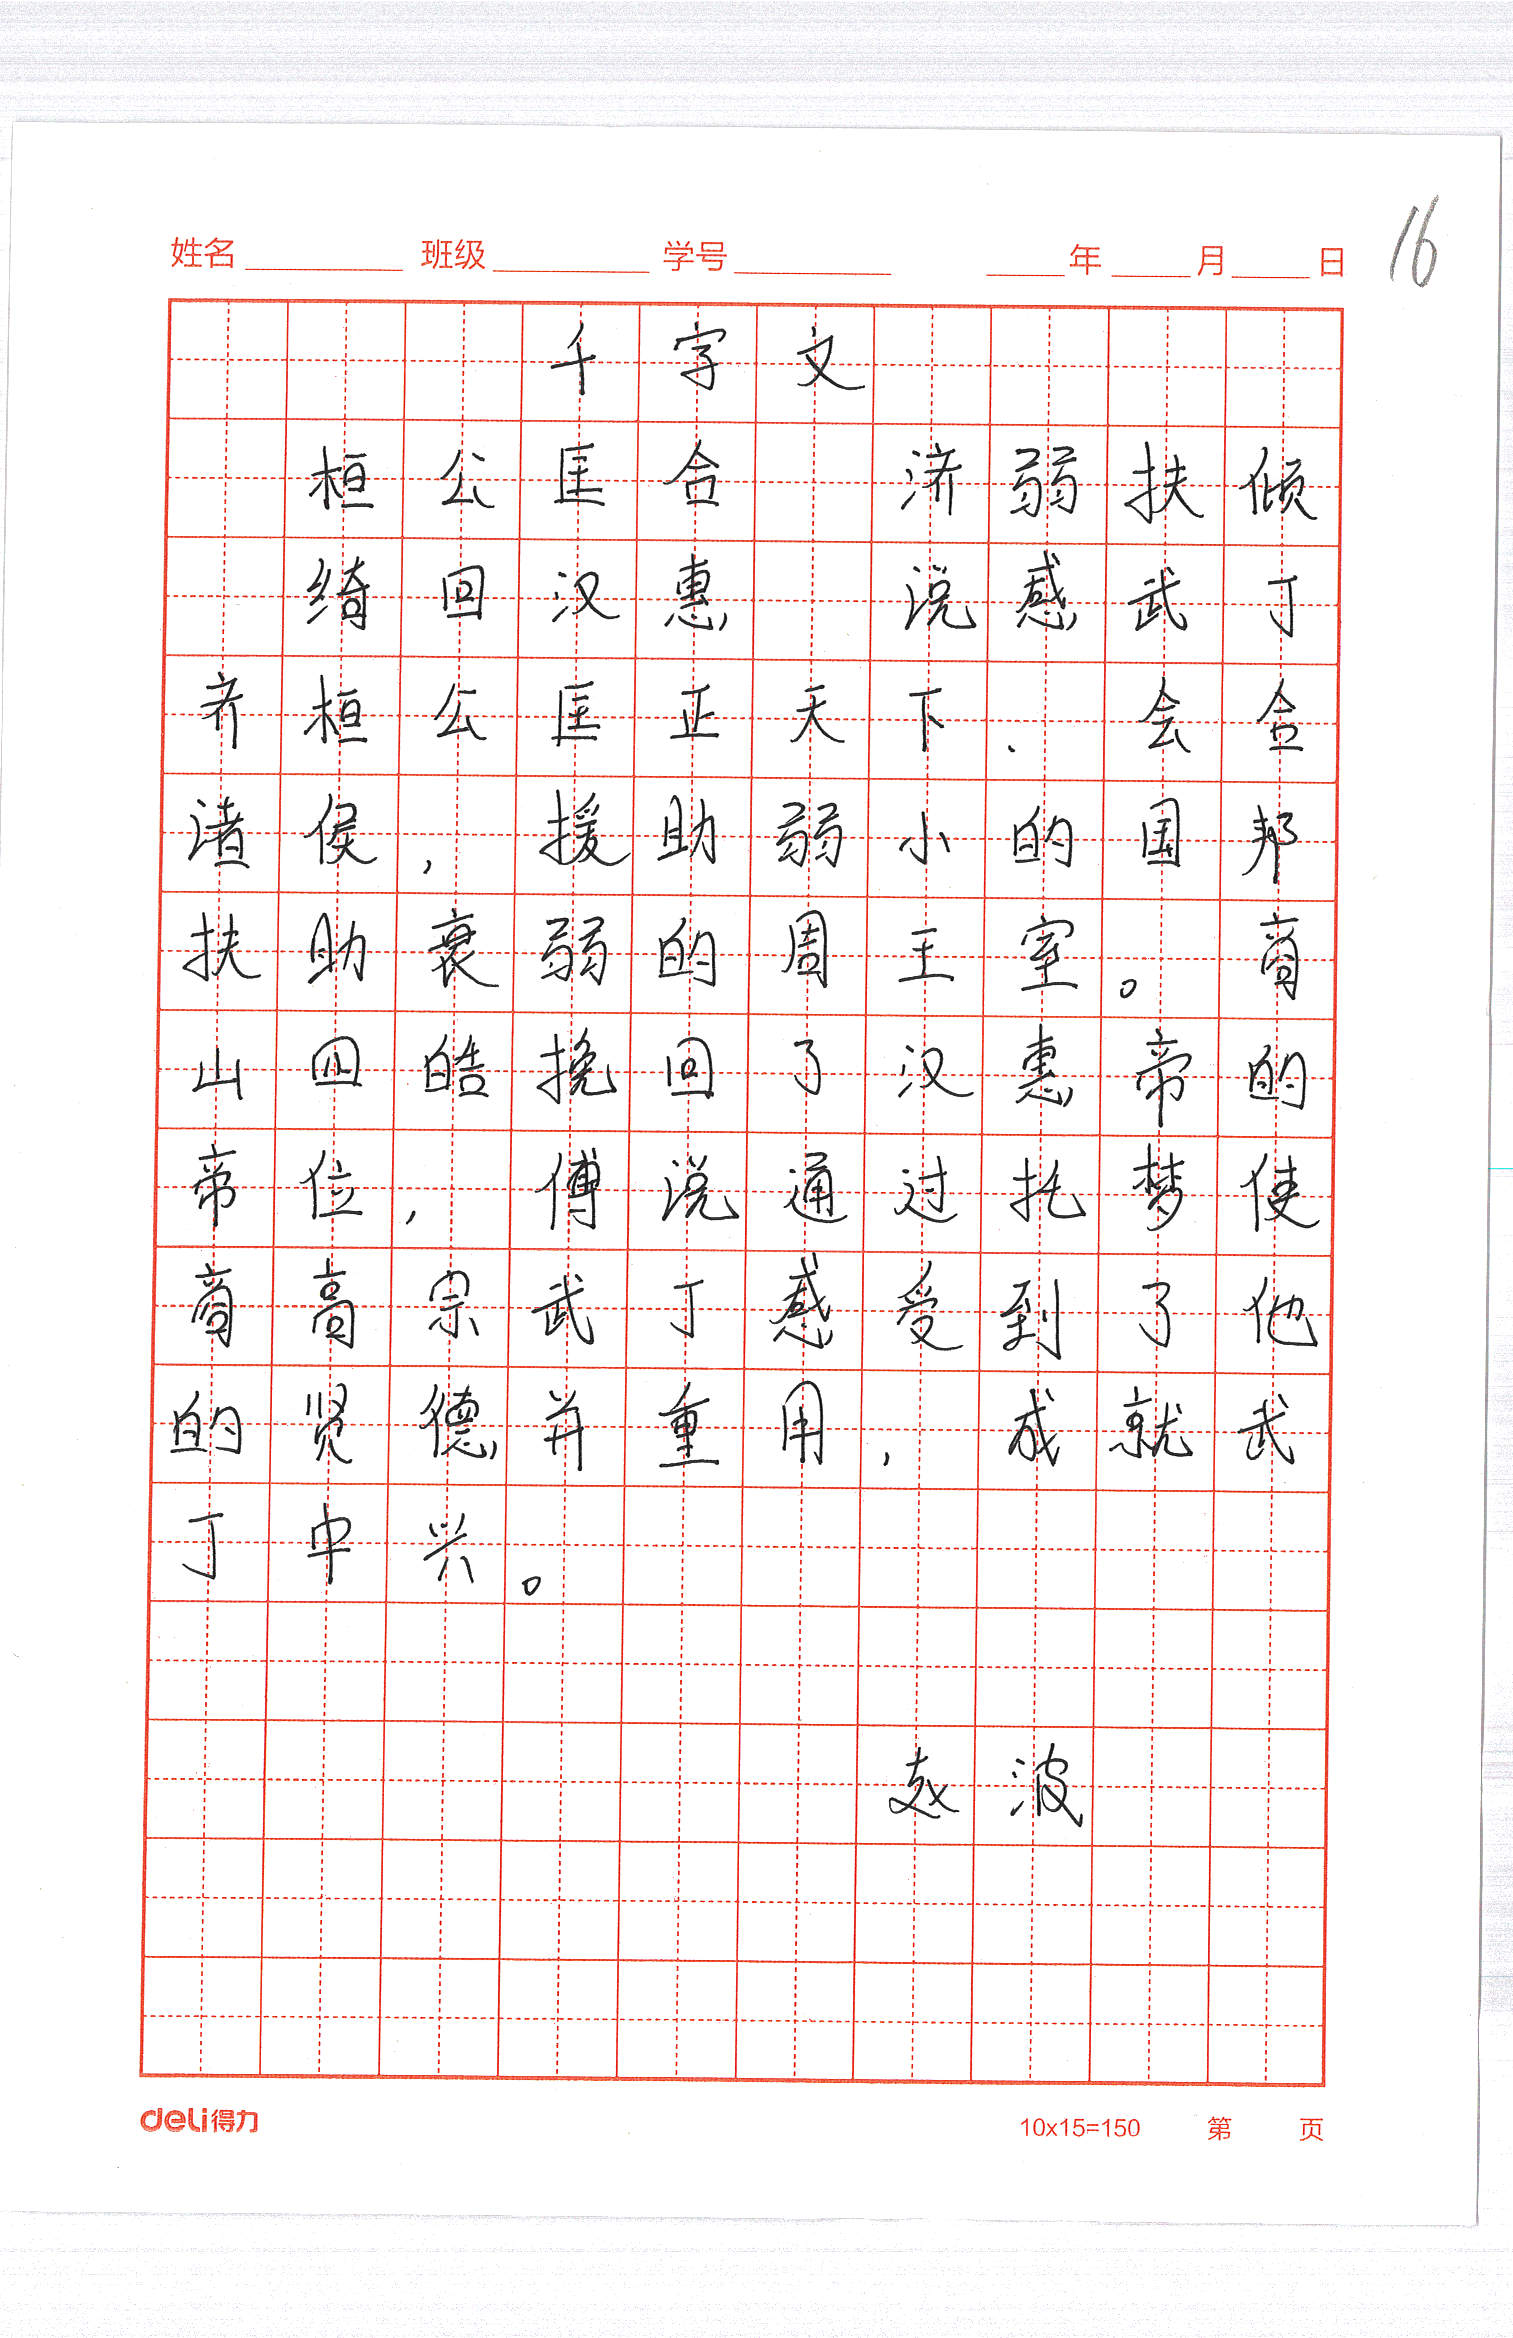 16
姓名 班级 学号 年 月 日
千字文
桓公匡合 济弱扶倾
绮回汉惠 说感武丁
齐桓公匡正天下. 会合
诸侯, 援助弱小的国邦
扶助衰弱的周王室。 商
山四皓挽回了汉惠帝的
帝位, 傅说通过托梦使
商高宗武丁感受到了他
的贤德并重用, 成就武
丁中兴。
赵波
deli得力 10x15=150 第 页